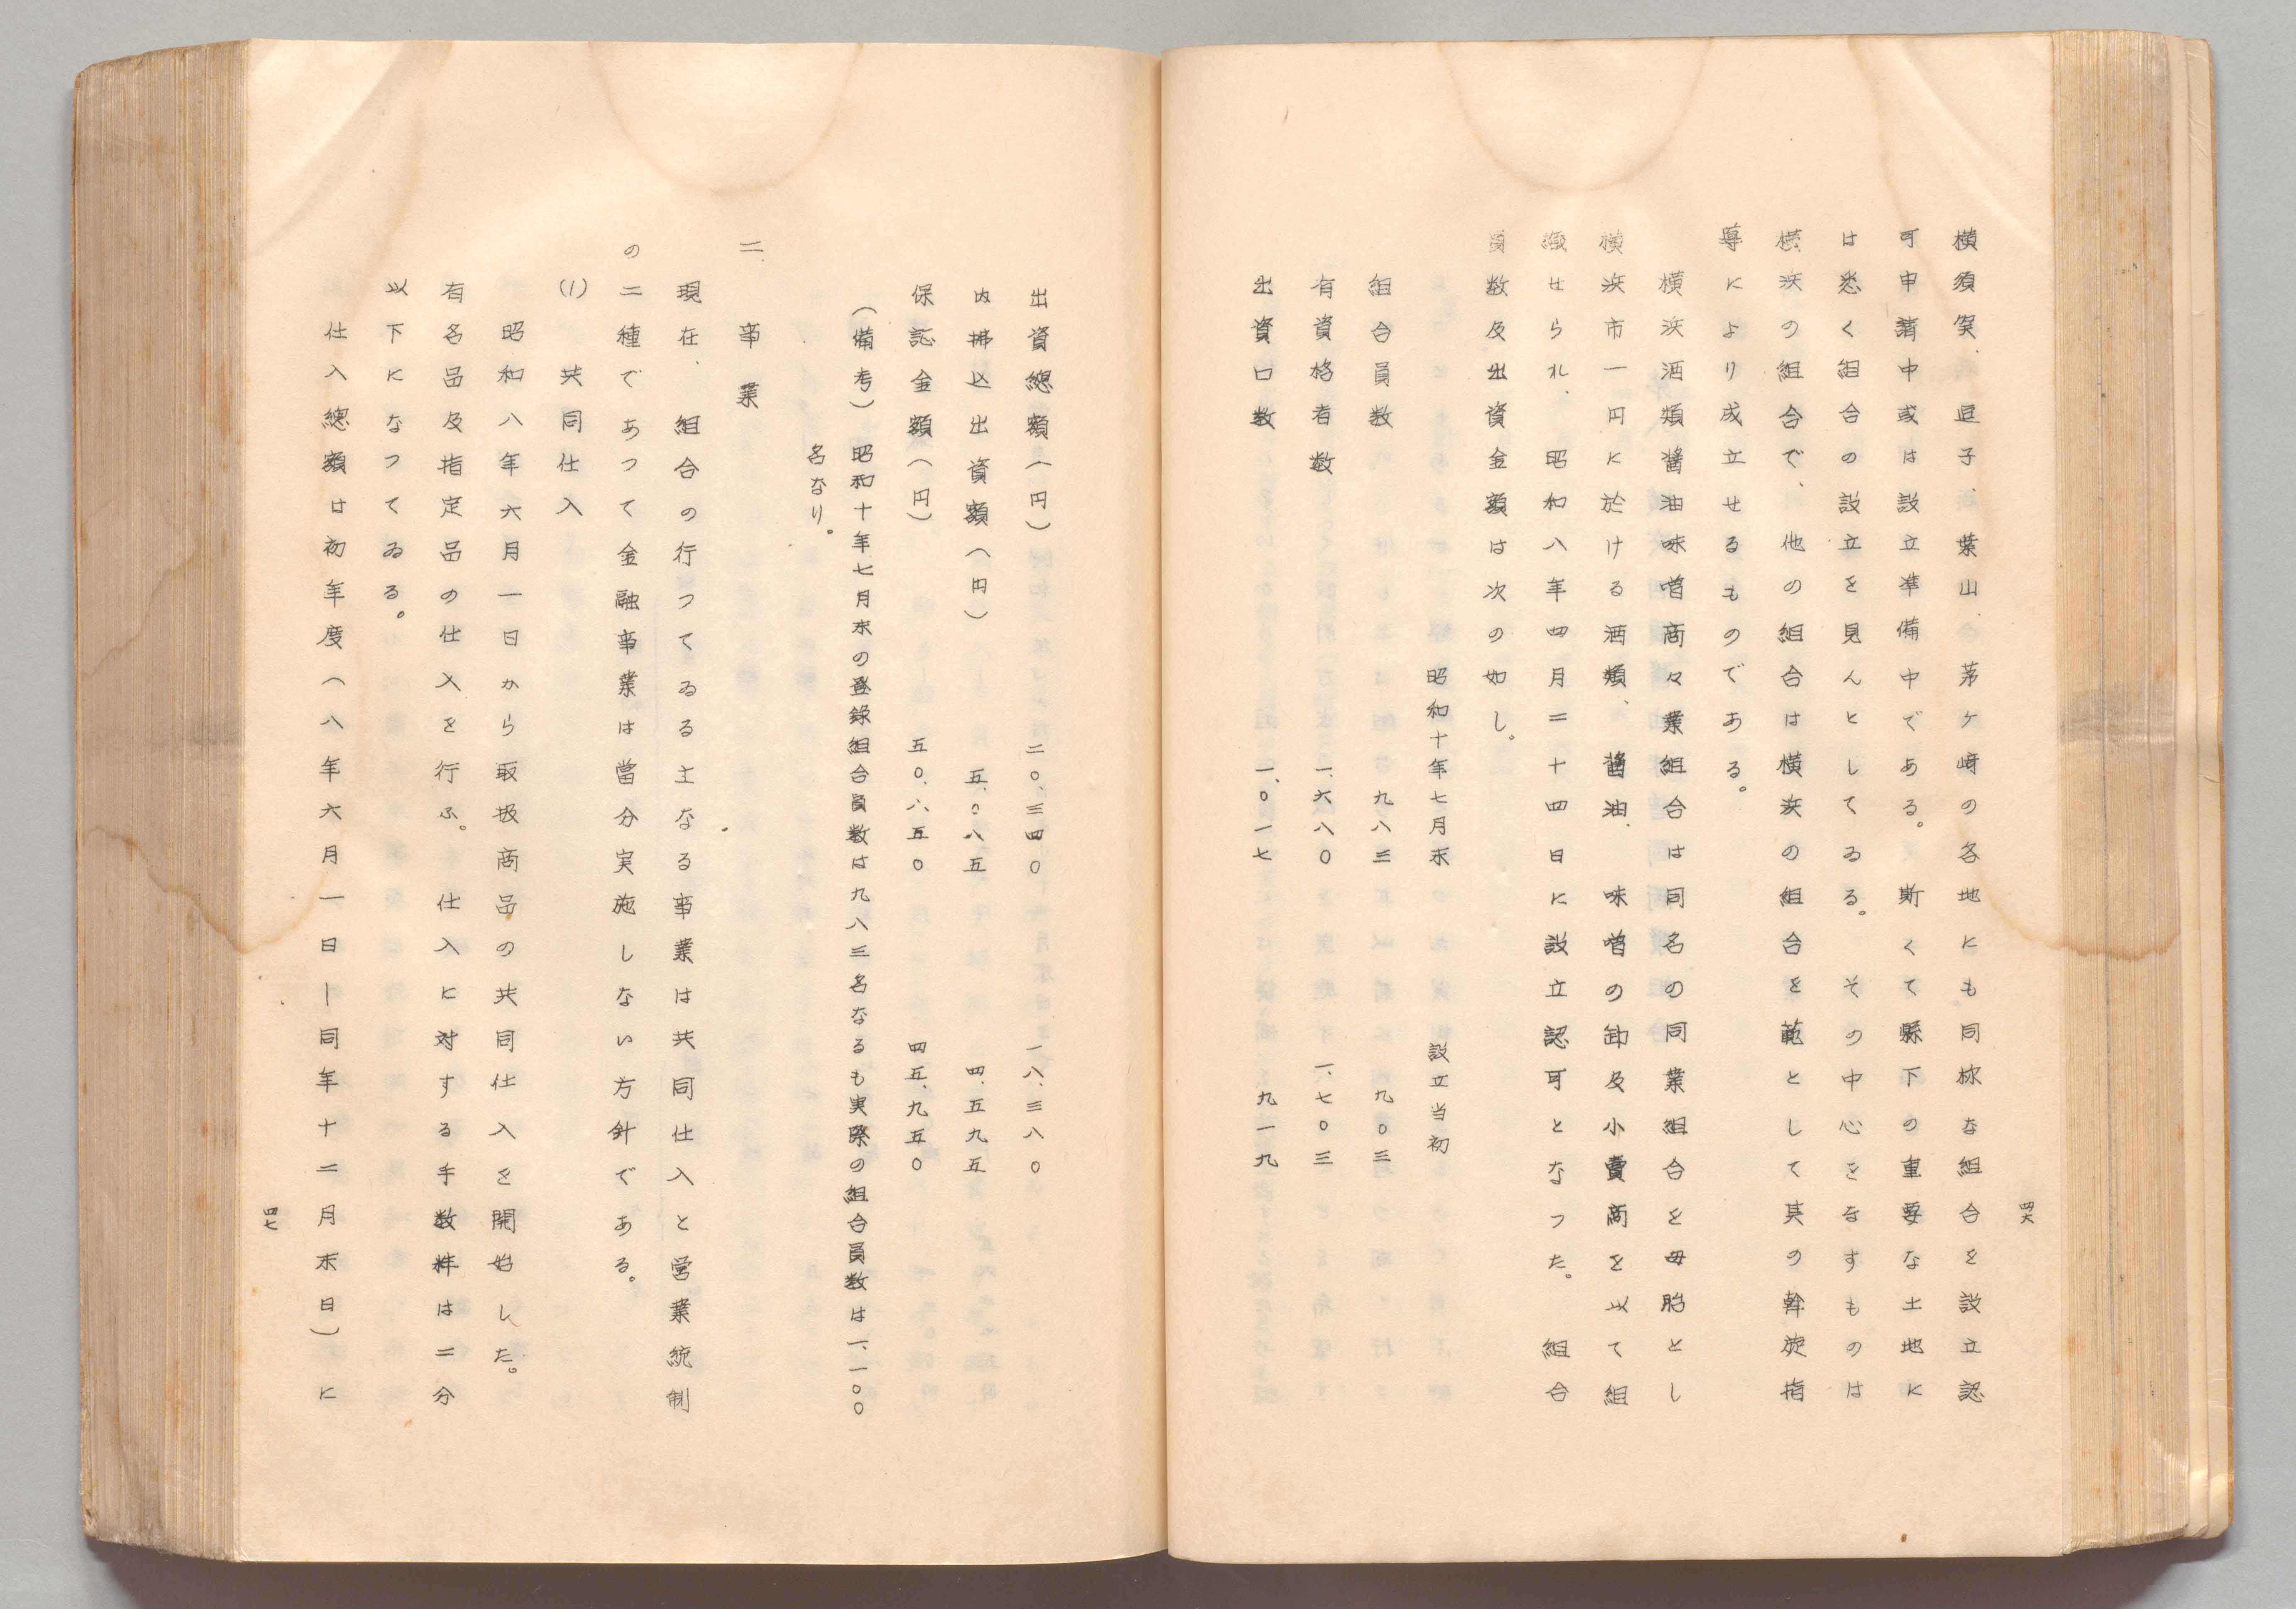 四六
横須賀、逗子、葉山、茅ケ崎の各地にも同様な組合を設立認
可申請中或は設立準備中である。斯くて縣下の重要な土地に
は悉く組合の設立を見んとしてゐる。その中心をなすものは
横浜の組合で、他の組合は横浜の組合を範として其の斡旋指
導により成立せるものである。
横浜酒類醤油味噌商々業組合は同名の同業組合を母胎とし
横浜市一円に於ける酒類、醤油、味噌の卸及小賣商を以て組
織せられ、昭和八年四月二十四日に設立認可となつた。組合
員数及出資金額は次の如し。
昭和十年七月末 設立当初
組合員数 九八三 九〇三
有資格者数 一、六八〇 一、七〇三
出資口数 一、〇一七 九一九
出資總額(円) 二〇、三四〇 一八、三八〇
内拂込出資額(円) 五、〇八五 四、五九五
保証金額(円) 五〇、八五〇 四五、九五〇
(備考) 昭和十年七月末の登録組合員数は九八三名なるも実際の組合員数は一、一〇〇
名なり。
二、事業
現在、組合の行つてゐる主なる事業は共同仕入と営業統制
の二種であつて金融事業は當分実施しない方針である。
(1) 共同仕入
昭和八年六月一日から取扱商品の共同仕入を開始した。
有名品及指定品の仕入を行ふ。仕入に対する手数料は二分
以下になつてゐる。
仕入總額は初年度(八年六月一日―同年十二月末日)に
四七